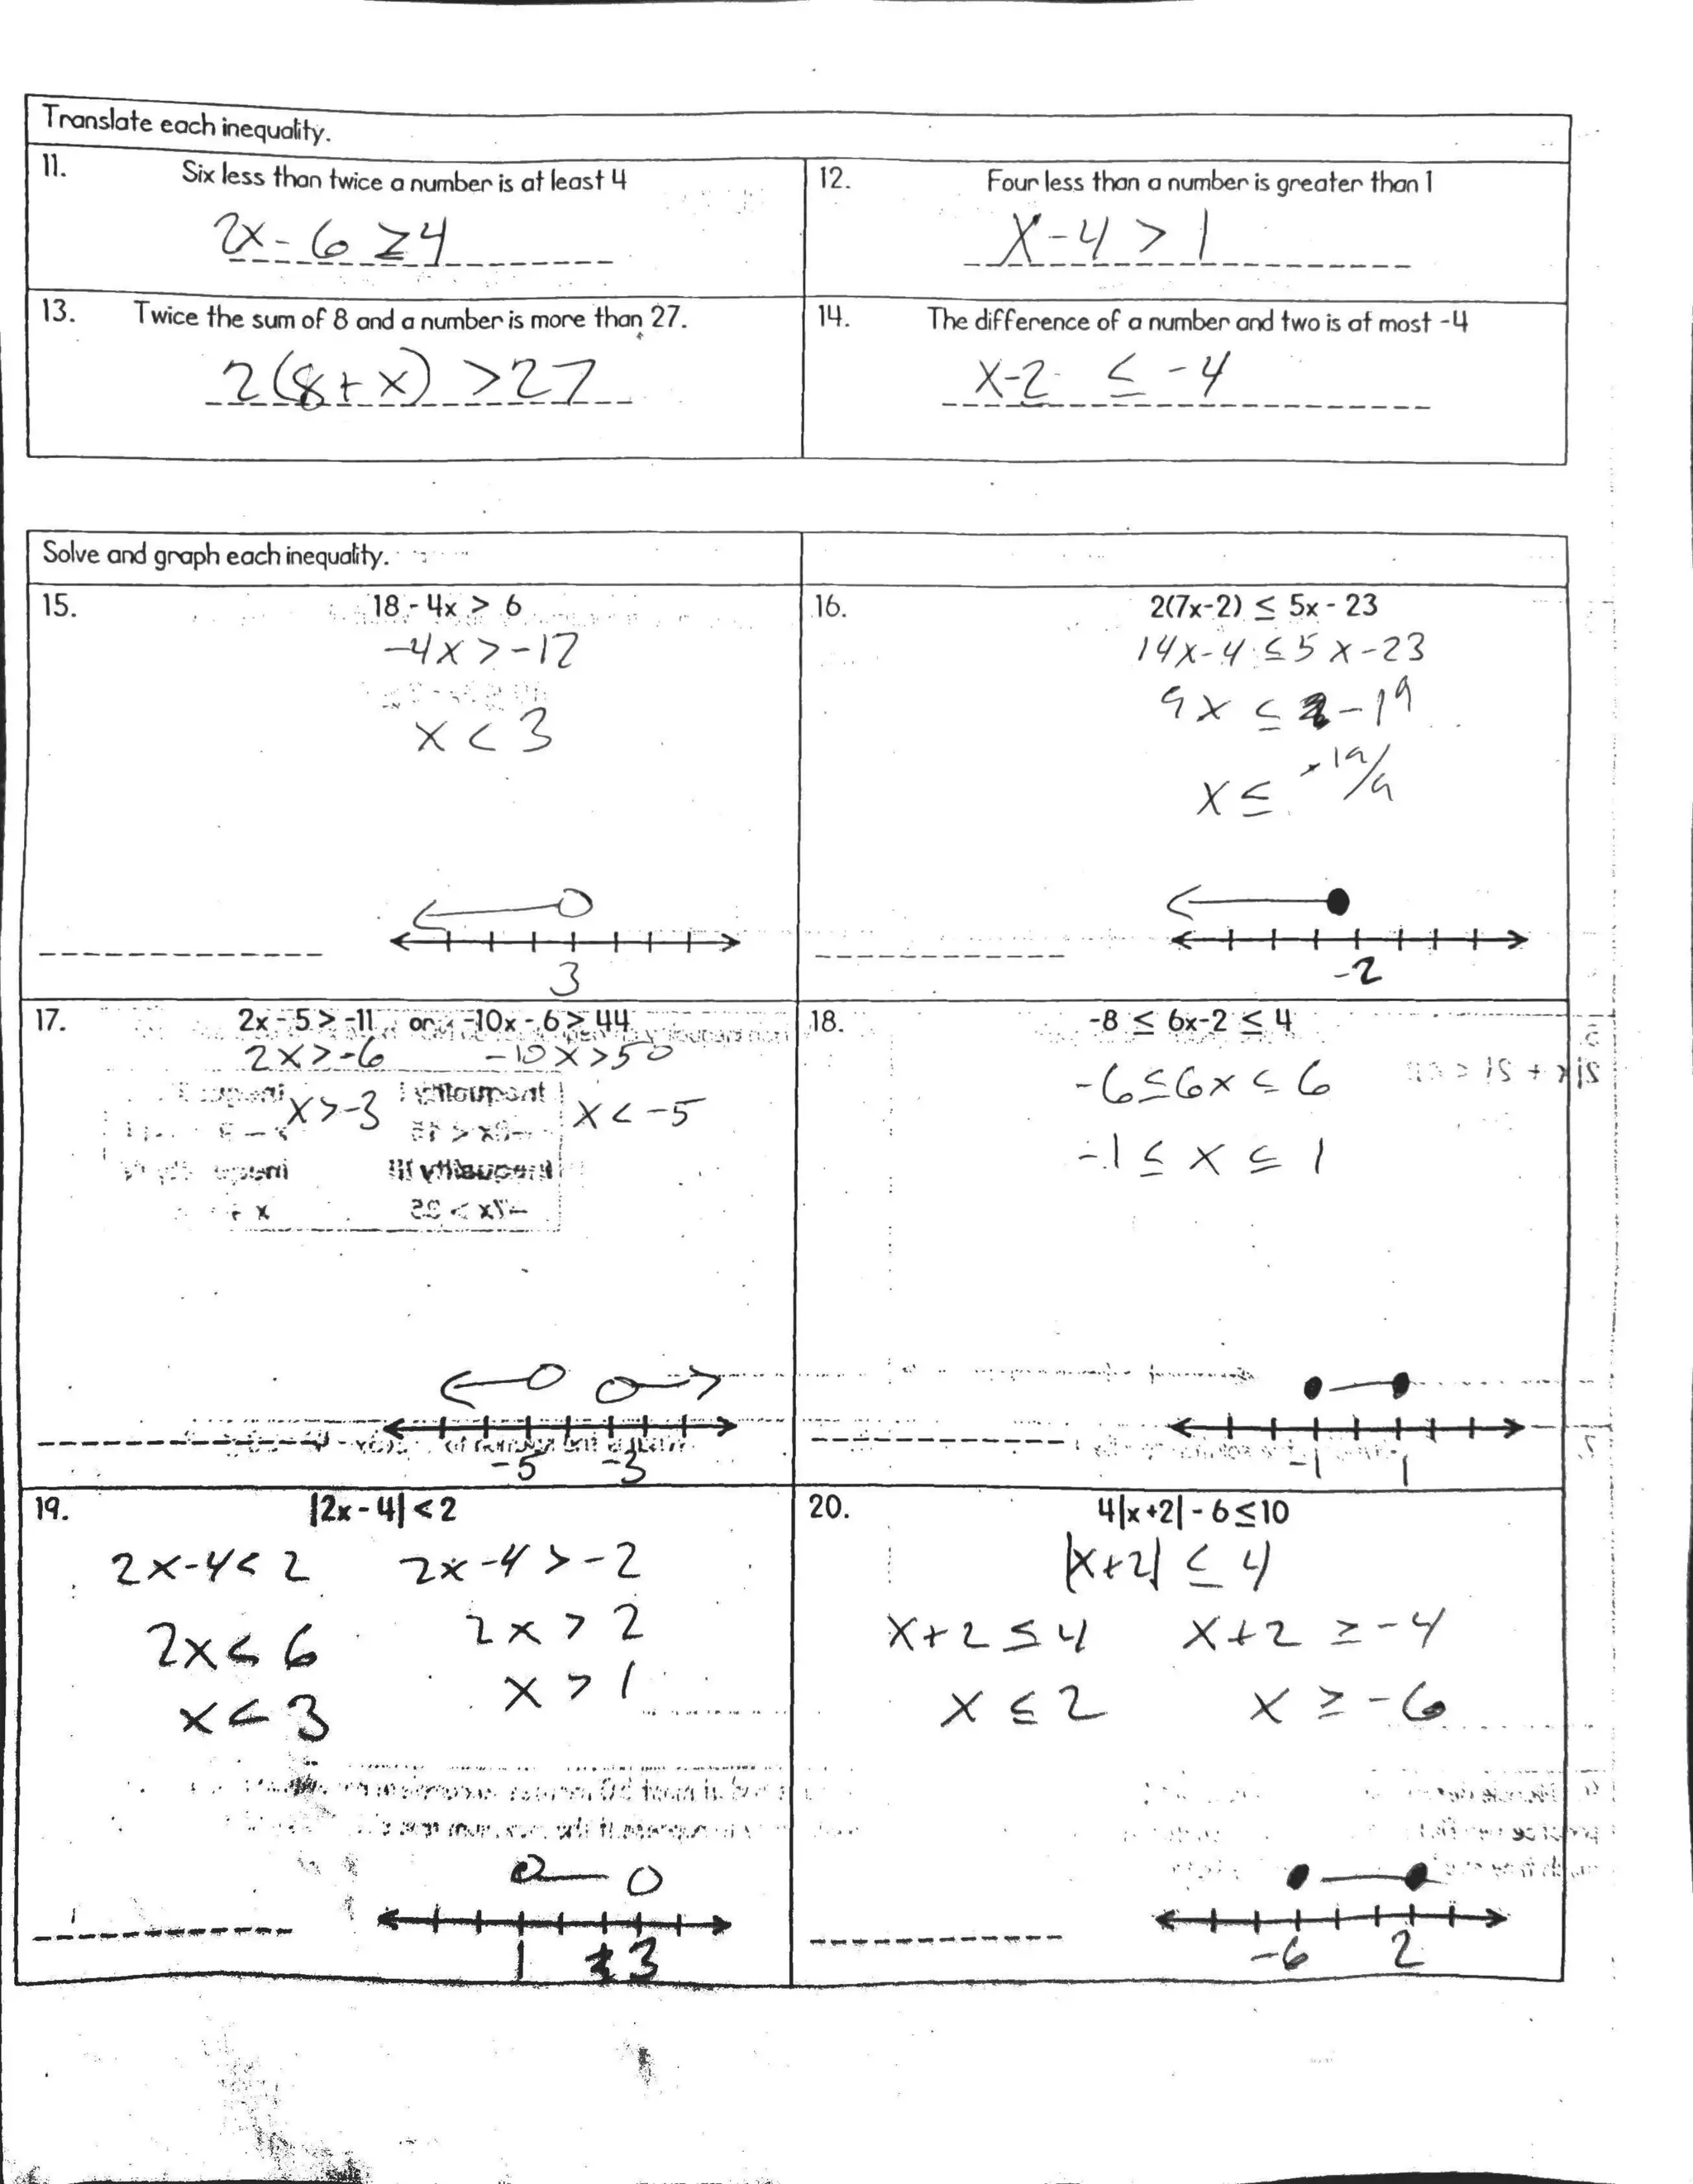 Translate each inequality.
11. Six less than twice a number is at least 4
2x - 6 ≥ 4
12. Four less than a number is greater than 1
x - 4 > 1
13. Twice the sum of 8 and a number is more than 27.
2(8 + x) > 27
14. The difference of a number and two is at most -4
x - 2 ≤ -4
Solve and graph each inequality.
15. 18 - 4x > 6
-4x > -12
x < 3
3
16. 2(7x-2) ≤ 5x - 23
14x - 4 ≤ 5x - 23
9x ≤ -19
x ≤ -19/9
-2
17. 2x - 5 > -11 or -10x - 6 > 44
2x > -6 -10x > 50
x > -3 x < -5
-5 -3
18. -8 ≤ 6x-2 ≤ 4
-6 ≤ 6x ≤ 6
-1 ≤ x ≤ 1
-1 1
19. |2x - 4| < 2
2x - 4 < 2 2x - 4 > -2
2x < 6 2x > 2
x < 3 x > 1
1 3
20. 4|x+2| - 6 ≤ 10
|x+2| ≤ 4
x+2 ≤ 4 x+2 ≥ -4
x ≤ 2 x ≥ -6
-6 2